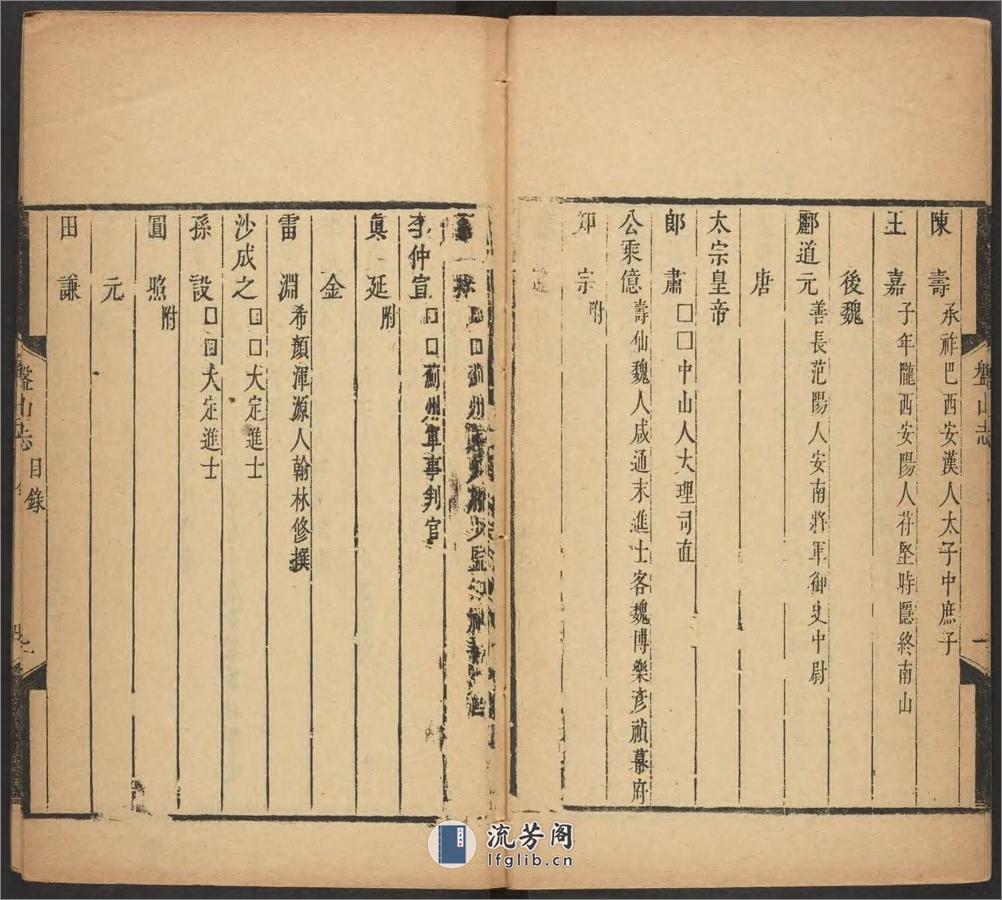 陳壽 承祚巴西安漢人太子中庶子
王嘉 子年隴西安陽人苻堅時隱終南山
後魏
酈道元 善長范陽人安南將軍御史中尉
唐
太宗皇帝
郎肅 □□中山人大理司直
公乘億 壽仙魏人咸通末進士客魏博樂彥禎幕府
知宗 附
盤山志
李仲宣 □□薊州軍事判官
真延 附
金
雷淵 希顏渾源人翰林修撰
沙成之 □□大定進士
孫設 □□大定進士
圓照 附
元
田謙
盤山志 目錄
流芳阁
lfglib.cn